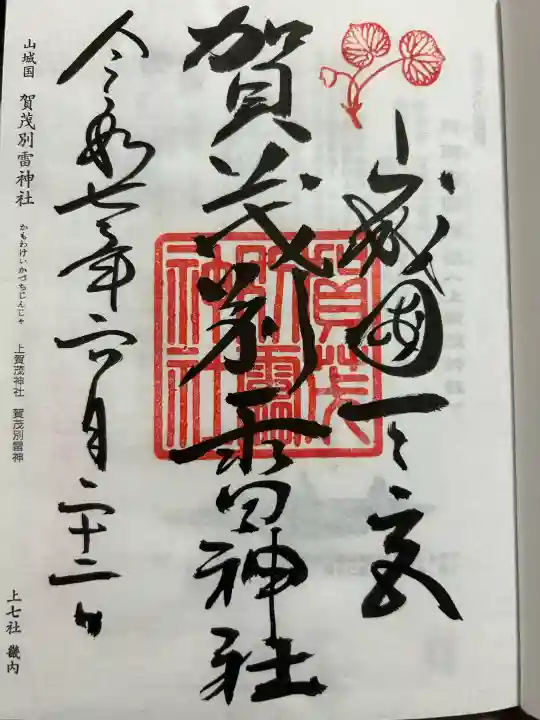 山城國一之宮
賀茂別雷神社
賀茂別雷神社
令和七年六月二十二日
山城国 賀茂別雷神社 かもわけいかづちじんじゃ 上賀茂神社 賀茂別雷神
上七社 畿内